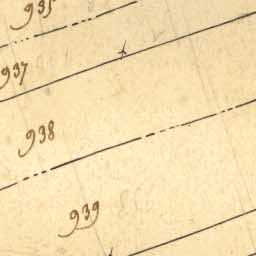 935
937
938
939